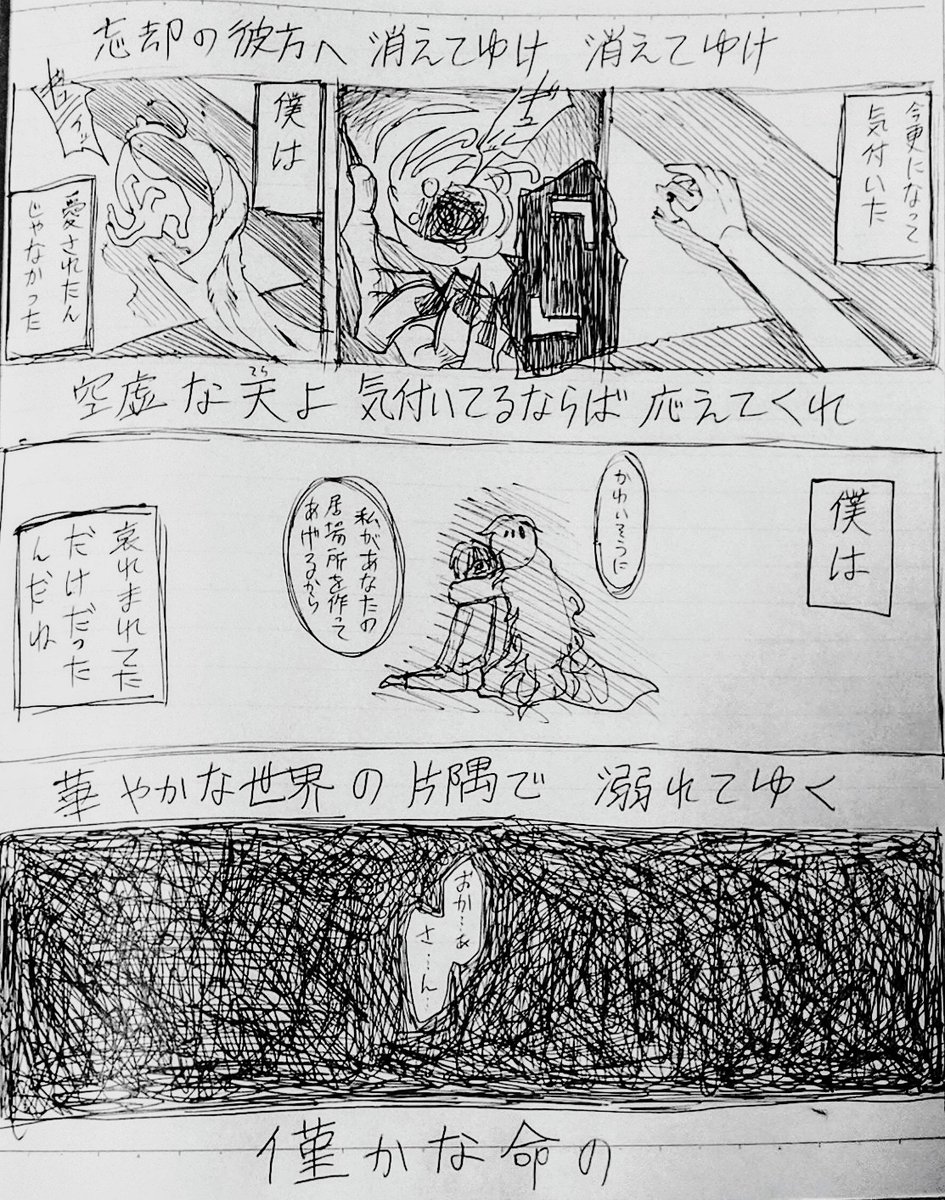 忘却の彼方へ 消えてゆけ 消えてゆけ
今更になって
気付いた
「」
僕は
愛されたん
じゃなかった
空虚な天よ 気付いてるならば 応えてくれ
そら
僕は
かわいそうに
私があなたの
居場所を作って
あげるから
哀れまれてた
だけだった
んだね
華やかな世界の片隅で 溺れてゆく
おか…あ
さ…ん…
僅かな命の